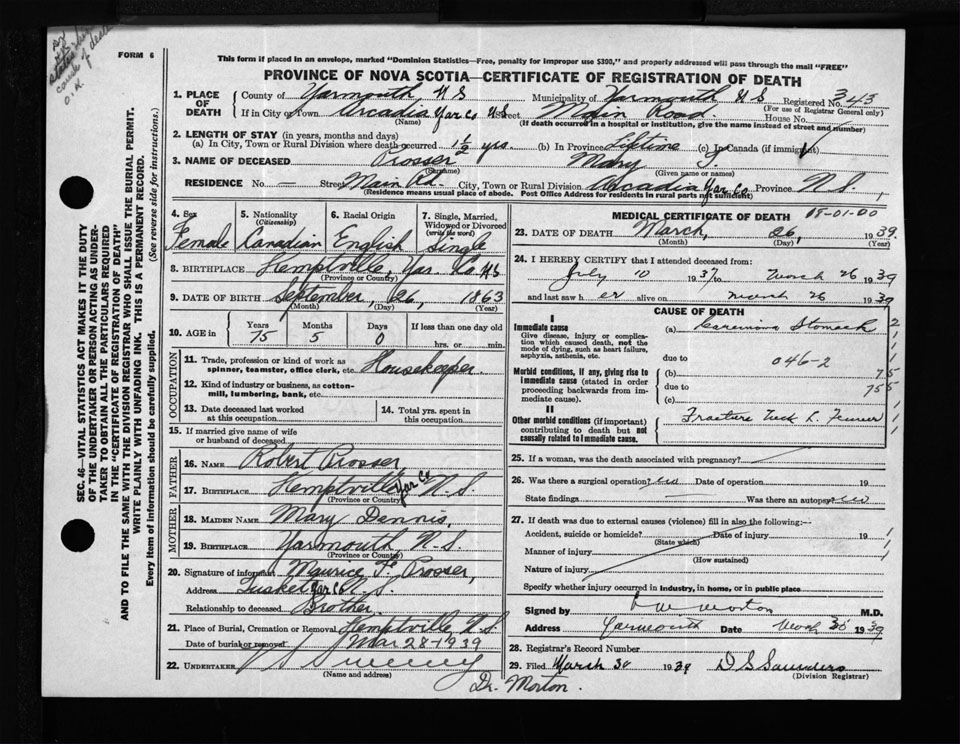 FORM 6
This form if placed in an envelope, marked "Dominion Statistics—Free, penalty for improper use $300," and properly addressed will pass through the mail "FREE"
PROVINCE OF NOVA SCOTIA—CERTIFICATE OF REGISTRATION OF DEATH
1. PLACE OF DEATH
County of Yarmouth, N S Municipality of Yarmouth N S Registered No. 343
(For use of Registrar General only)
If in City or Town Arcadia Yar Co N S Street Main Road House No.
(Name) (If death occurred in a hospital or institution, give the name instead of street and number)
2. LENGTH OF STAY (in years, months and days)
(a) In City, Town or Rural Division where death occurred 1 1/2 yrs (b) In Province Lifetime (c) In Canada (if immigrant)
3. NAME OF DECEASED Prosser Mary J.
(Surname) (Given name or names)
RESIDENCE No. — Street Main Rd. City, Town or Rural Division Arcadia Yar Co Province N S.
(Residence means usual place of abode. Post Office Address for residents in rural parts not sufficient)
4. Sex Female
5. Nationality (Citizenship) Canadian
6. Racial Origin English
7. Single, Married, Widowed or Divorced (write the word) Single
8. BIRTHPLACE Kemptville, Yar. Co. N S
(Province or Country)
9. DATE OF BIRTH September, 26, 1863
(Month) (Day) (Year)
10. AGE in Years 75 Months 5 Days 0 If less than one day old hrs. or min.
OCCUPATION
11. Trade, profession or kind of work as spinner, teamster, office clerk, etc. Housekeeper.
12. Kind of industry or business, as cotton-mill, lumbering, bank, etc.
13. Date deceased last worked at this occupation
14. Total yrs. spent in this occupation
15. If married give name of wife or husband of deceased
FATHER
16. NAME Robert Prosser
17. BIRTHPLACE Kemptville Yar Co N.S
(Province or Country)
MOTHER
18. MAIDEN NAME Mary Dennis,
19. BIRTHPLACE Yarmouth N.S
(Province or Country)
20. Signature of informant Maurice F. Prosser,
Address Tusket Yar Co N. S.
Relationship to deceased Brother.
21. Place of Burial, Cremation or Removal Kemptville, N.S
Date of burial or removal Mar 28-1939
22. UNDERTAKER Sweeney
(Name and address)
MEDICAL CERTIFICATE OF DEATH 18-01-00
23. DATE OF DEATH March, 26, 1939.
(Month) (Day) (Year)
24. I HEREBY CERTIFY that I attended deceased from:
July 10 1937 to March 26 1939
and last saw her alive on March 26 1939
CAUSE OF DEATH
I
Immediate cause
Give disease, injury or complication which caused death, not the mode of dying, such as heart failure, asphyxia, asthenia, etc.
(a) Carcinoma Stomach
due to 046-2
Morbid conditions, if any, giving rise to immediate cause (stated in order proceeding backwards from immediate cause).
(b) 75
due to 755
(c)
II
Other morbid conditions (if important) contributing to death but not causally related to immediate cause.
Fracture Neck L. Femur
25. If a woman, was the death associated with pregnancy?
26. Was there a surgical operation? No Date of operation 19
State findings — Was there an autopsy
27. If death was due to external causes (violence) fill in also the following:—
Accident, suicide or homicide? Date of injury 19
(State which)
Manner of injury
(How sustained)
Nature of injury
Specify whether injury occurred in industry, in home, or in public place
Signed by Morton M.D.
Address Yarmouth Date March 30 1939
28. Registrar's Record Number
29. Filed March 30 1939 D S Saunders
(Division Registrar)
Dr. Morton.
SEC. 46—VITAL STATISTICS ACT MAKES IT THE DUTY
OF THE UNDERTAKER OR PERSON ACTING AS UNDER-
TAKER TO OBTAIN ALL THE PARTICULARS REQUIRED
IN THE "CERTIFICATE OF REGISTRATION OF DEATH"
AND TO FILE THE SAME WITH THE DIVISION REGISTRAR WHO SHALL ISSUE THE BURIAL PERMIT.
WRITE PLAINLY WITH UNFADING INK. THIS IS A PERMANENT RECORD.
Every item of information should be carefully supplied. (See reverse side for instructions.)
cause of death
O.K.